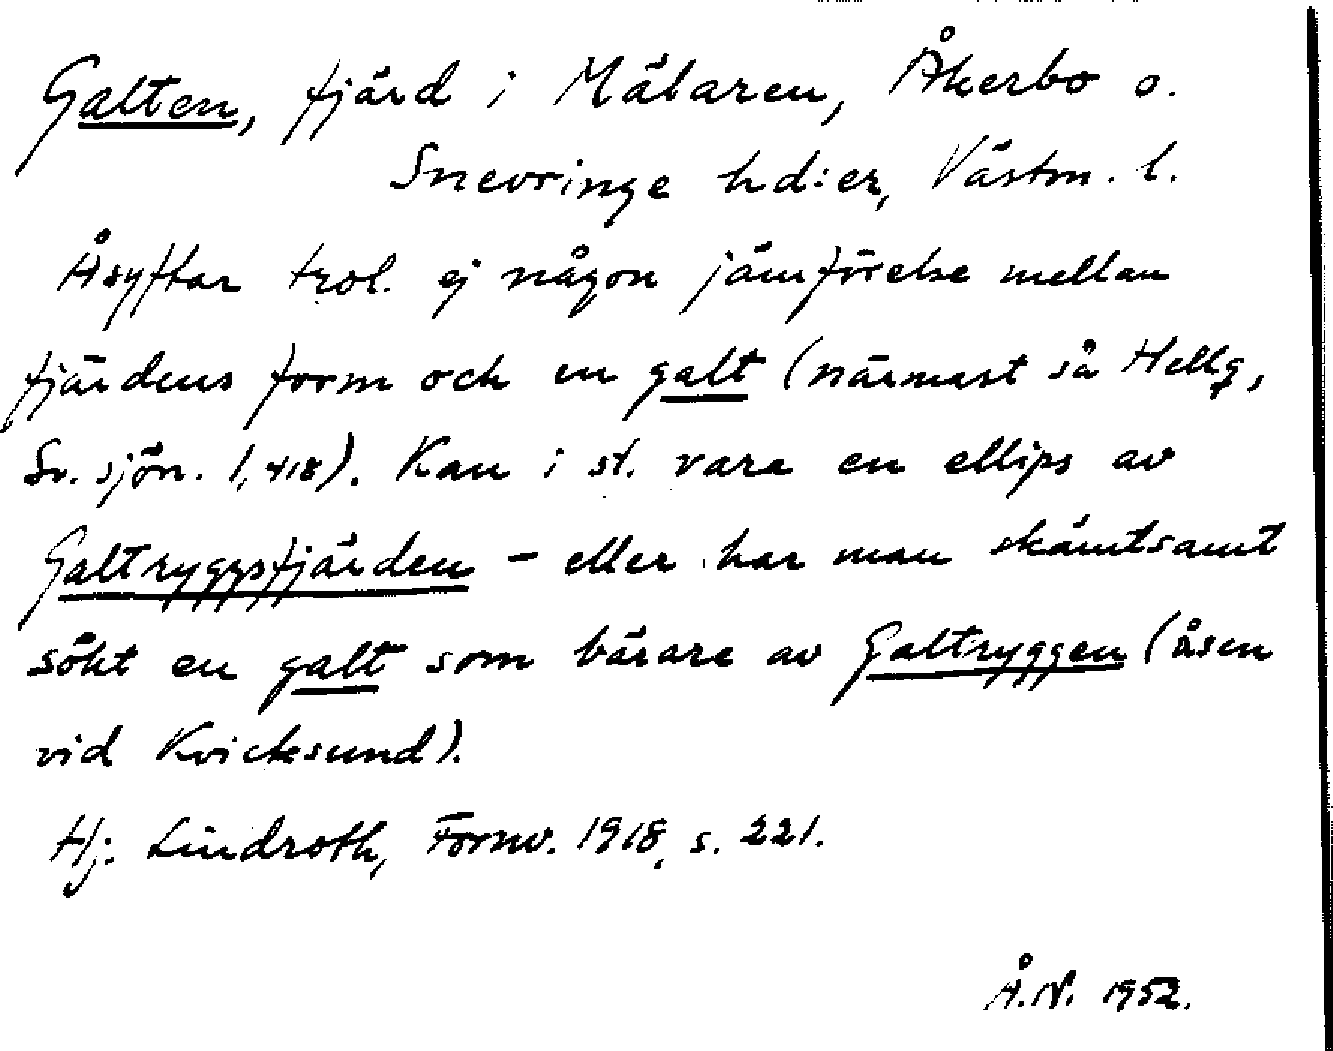 Galten, fjärd i Mälaren, Åkerbo o.
Snevringe hd:er, Västm. l.
Åsyftar trol. ej någon jämförelse mellan
fjärdens form och en galt (närmast så Hellq,
Sv. sjön. 1,418). Kan i st. vara en ellips av
Galtryggsfjärden - eller har man skämtsamt
sökt en galt som bärare av Galtryggen (åsen
vid Kvicksund).
Hj. Lindroth, Fornv. 1918, s. 221.
Å.N. 1952.